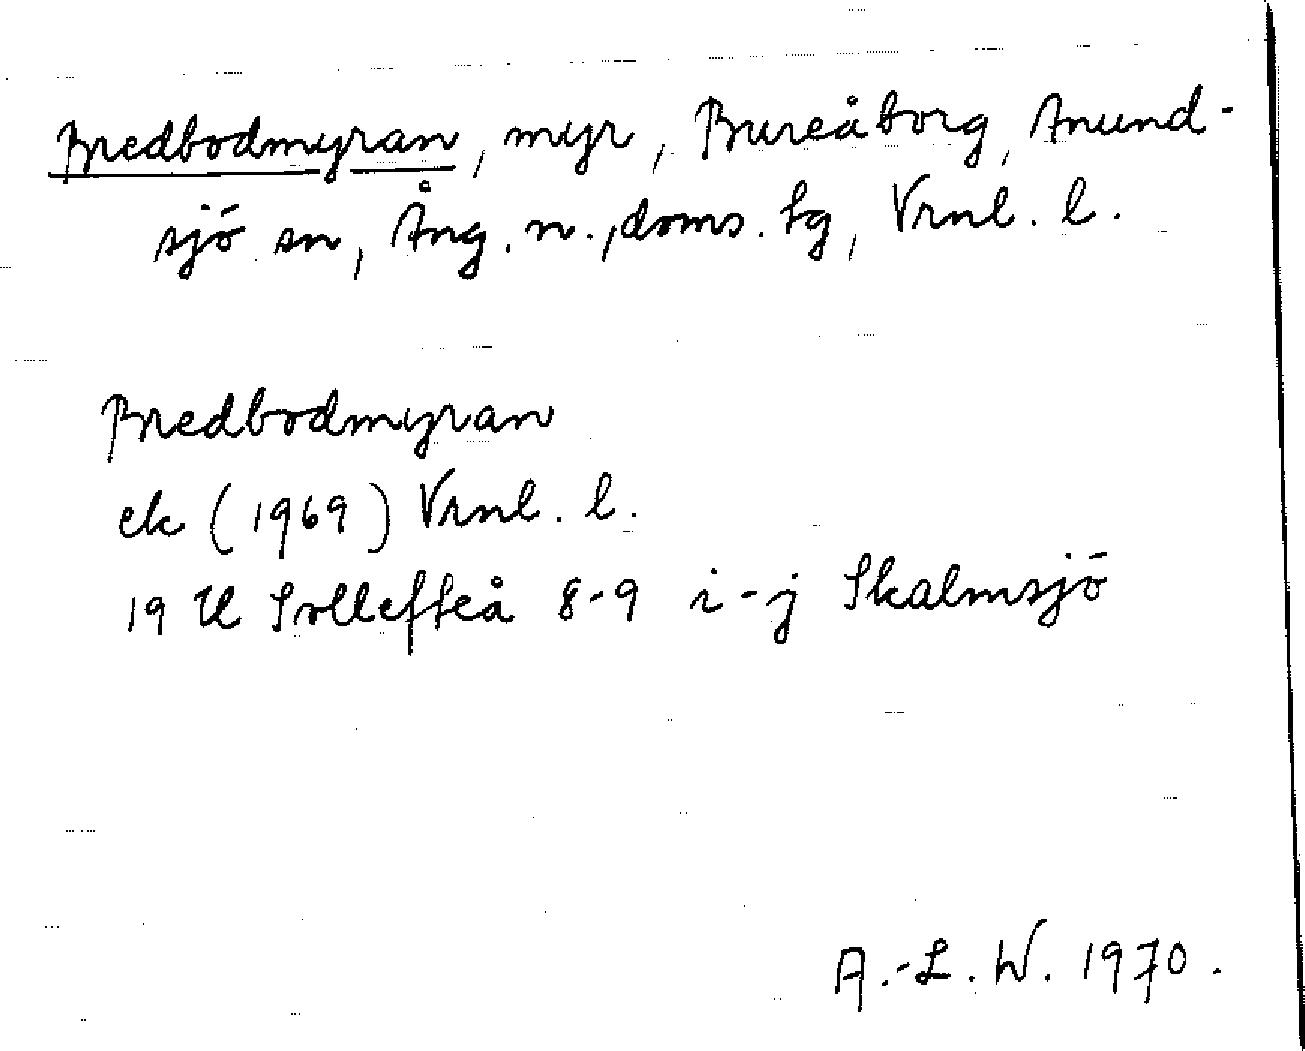 Bredbodmyran, myr, Bureåborg, Anund-
sjö sn, Ång. n., doms. tg, Vrnl. l.
Bredbodmyran
ek (1969) Vrnl. l.
19 H Sollefteå 8-9 i-j Skalmsjö
A.-L. W. 1970.